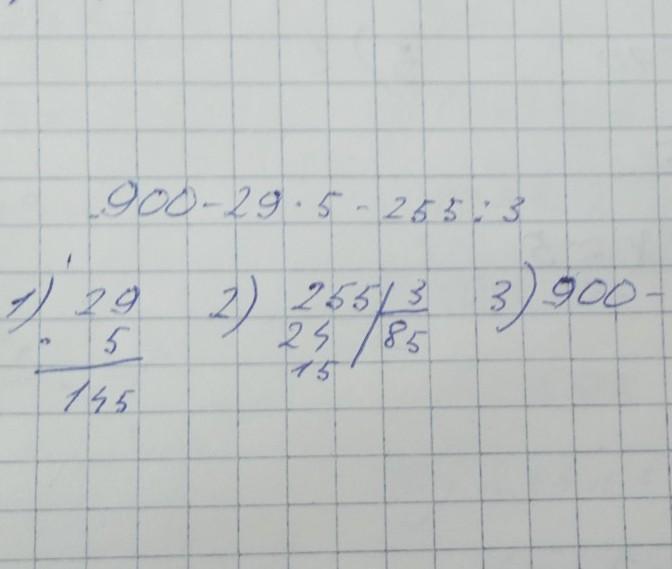 900-29·5-255:3
1) 29 2) 255 3 3) 900-
· 5 24 85
145 15